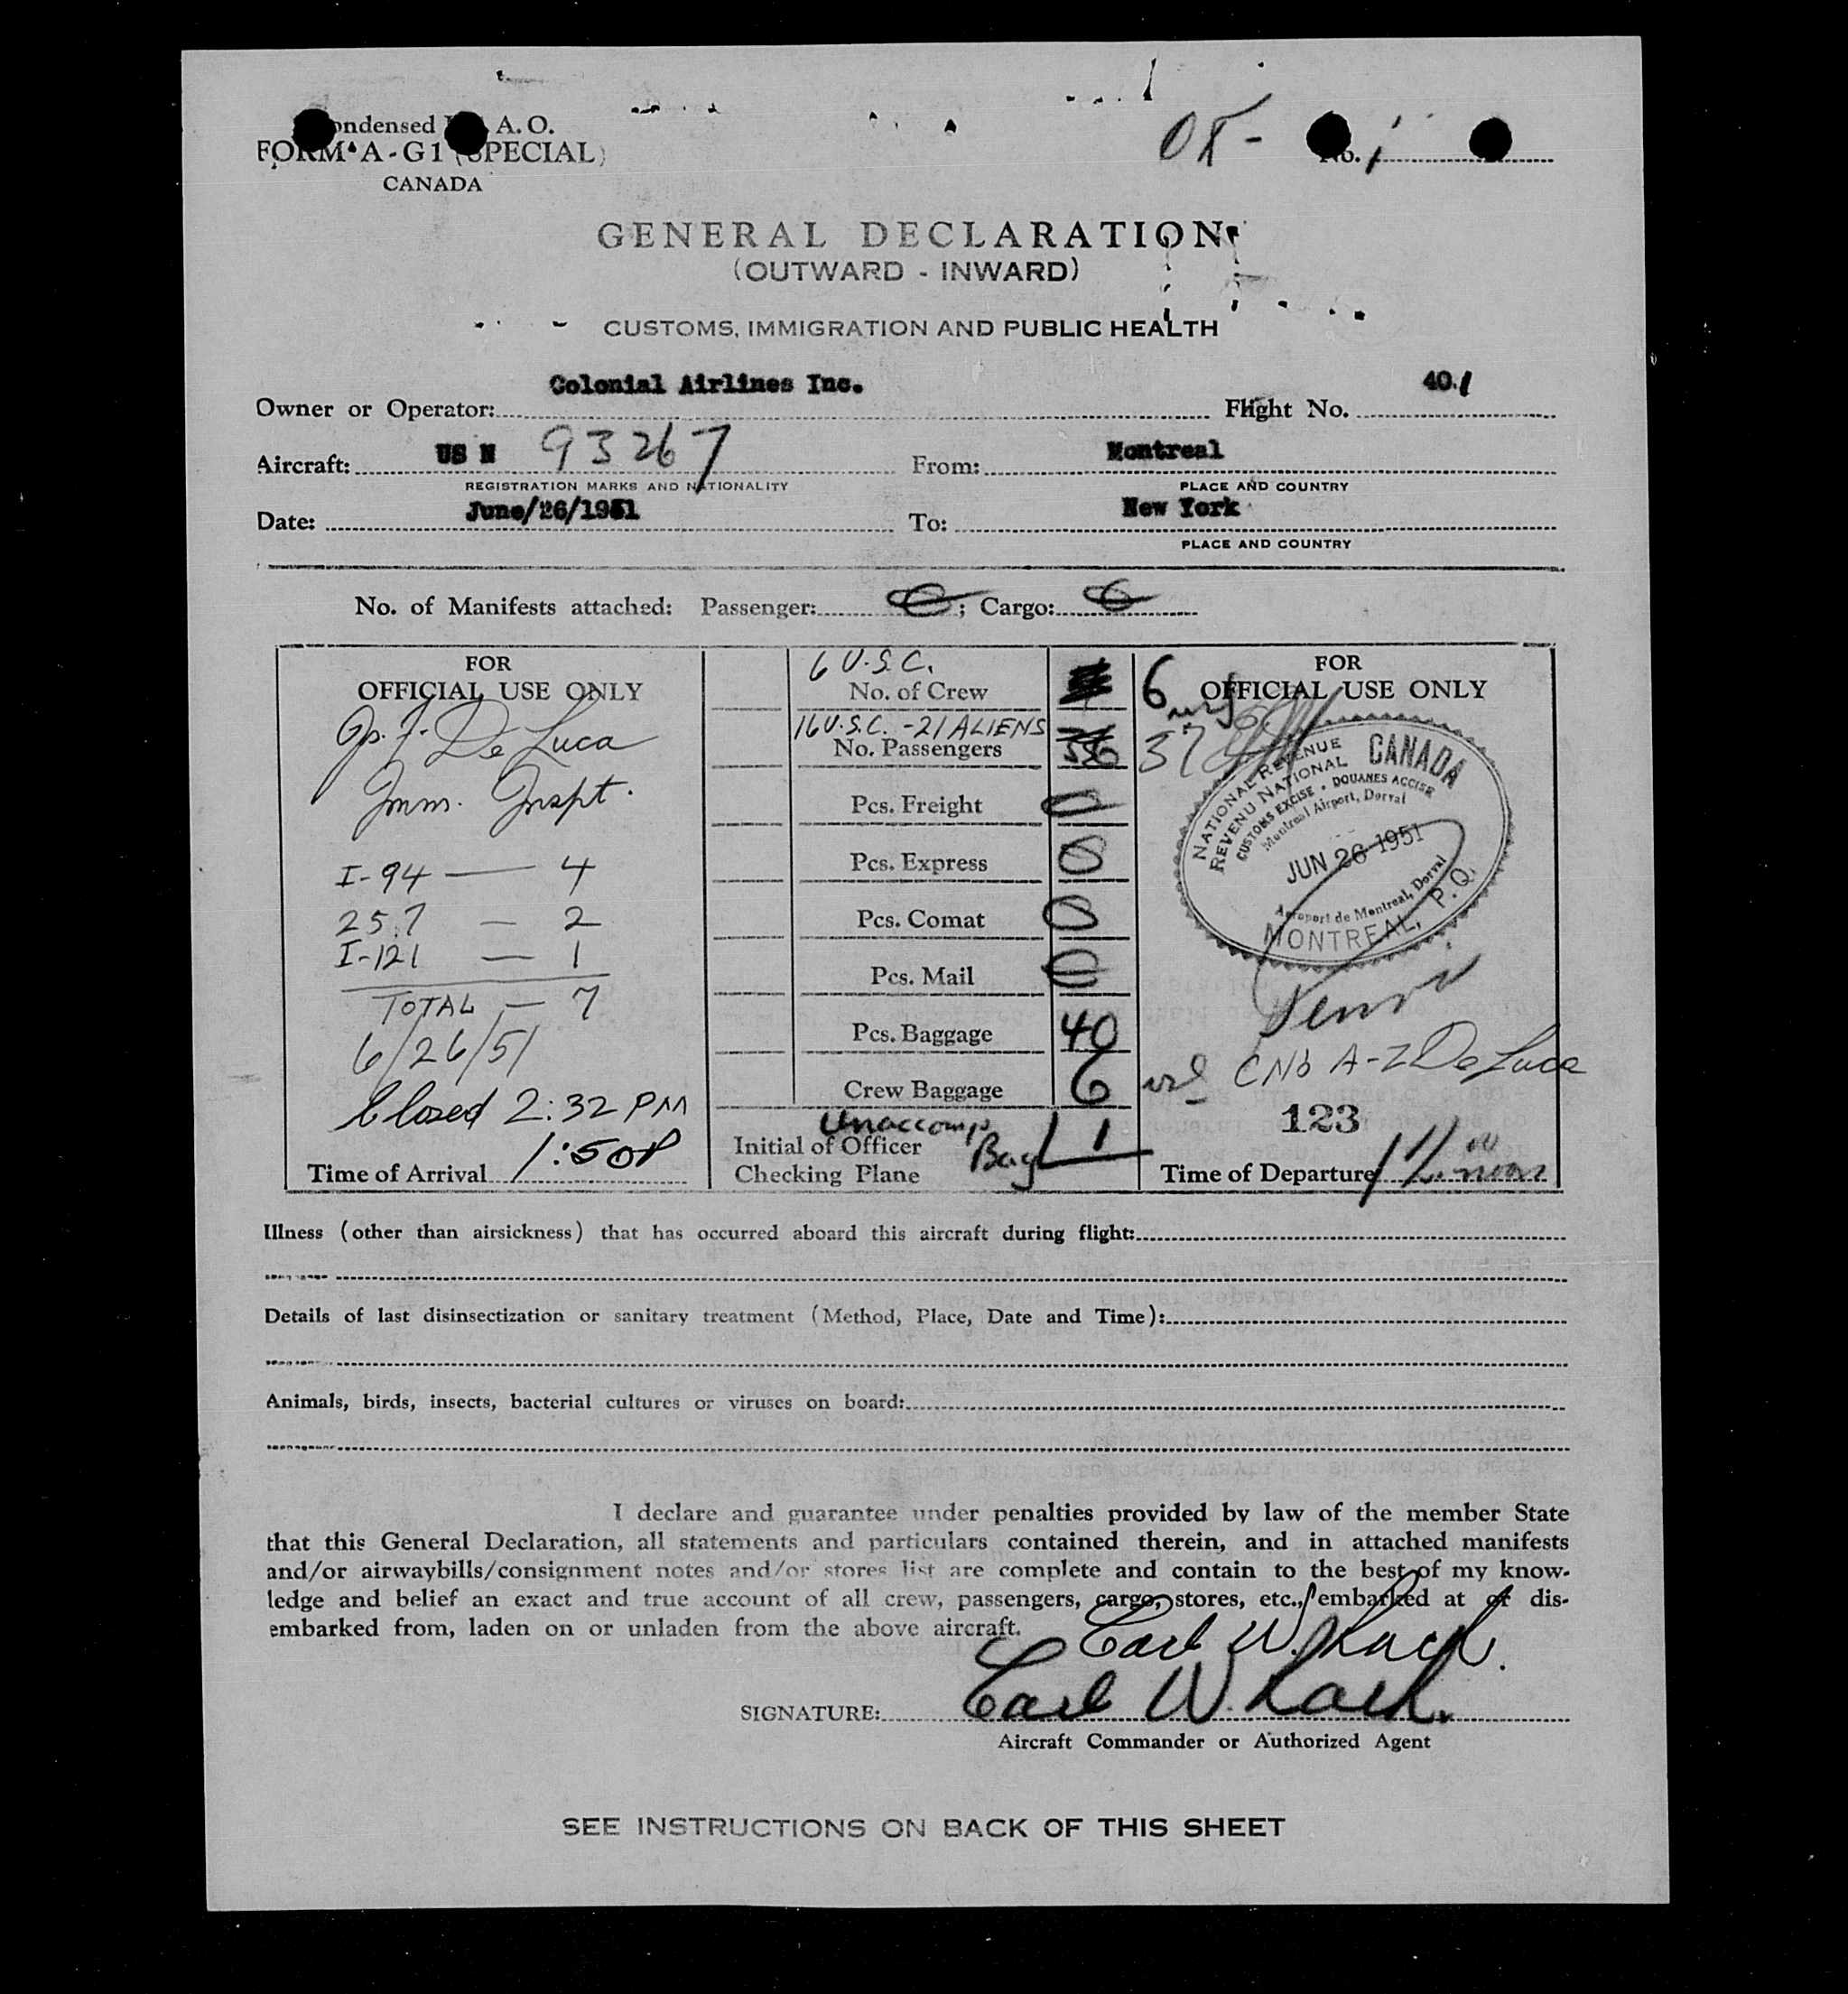 ondensed A. O.
OK- No. 1
FORM A-G1 (SPECIAL)
CANADA
GENERAL DECLARATION
(OUTWARD - INWARD)
CUSTOMS, IMMIGRATION AND PUBLIC HEALTH
Owner or Operator: Colonial Airlines Inc. Flight No. 40.1
Aircraft: US N 93267 From: Montreal
REGISTRATION MARKS AND NATIONALITY PLACE AND COUNTRY
Date: June/26/1951 To: New York
PLACE AND COUNTRY
No. of Manifests attached: Passenger: 0; Cargo: 0
FOR
OFFICIAL USE ONLY
De Luca
Imm. Inspt.
I-94 — 4
257 — 2
I-121 — 1
TOTAL — 7
6/26/51
Closed 2:32 PM
Time of Arrival 1:50P
6 U.S.C.
No. of Crew 6
16 U.S.C. -21 ALIENS
No. Passengers 37
Pcs. Freight 0
Pcs. Express 0
Pcs. Comat 0
Pcs. Mail 0
Pcs. Baggage 40
Crew Baggage 6
Unaccomp
Bag 1
Initial of Officer
Checking Plane
FOR
OFFICIAL USE ONLY
NATIONAL REVENUE CANADA
REVENU NATIONAL
CUSTOMS EXCISE • DOUANES ACCISE
Montreal Airport, Dorval
JUN 26 1951
Aeroport de Montreal, Dorval
MONTREAL, P.Q.
A-2 De Luca
123
Time of Departure
Illness (other than airsickness) that has occurred aboard this aircraft during flight:
Details of last disinsectization or sanitary treatment (Method, Place, Date and Time):
Animals, birds, insects, bacterial cultures or viruses on board:
I declare and guarantee under penalties provided by law of the member State
that this General Declaration, all statements and particulars contained therein, and in attached manifests
and/or airwaybills/consignment notes and/or stores list are complete and contain to the best of my know-
ledge and belief an exact and true account of all crew, passengers, cargo, stores, etc., embarked at or dis-
embarked from, laden on or unladen from the above aircraft.
Carl W.
SIGNATURE: Carl W.
Aircraft Commander or Authorized Agent
SEE INSTRUCTIONS ON BACK OF THIS SHEET